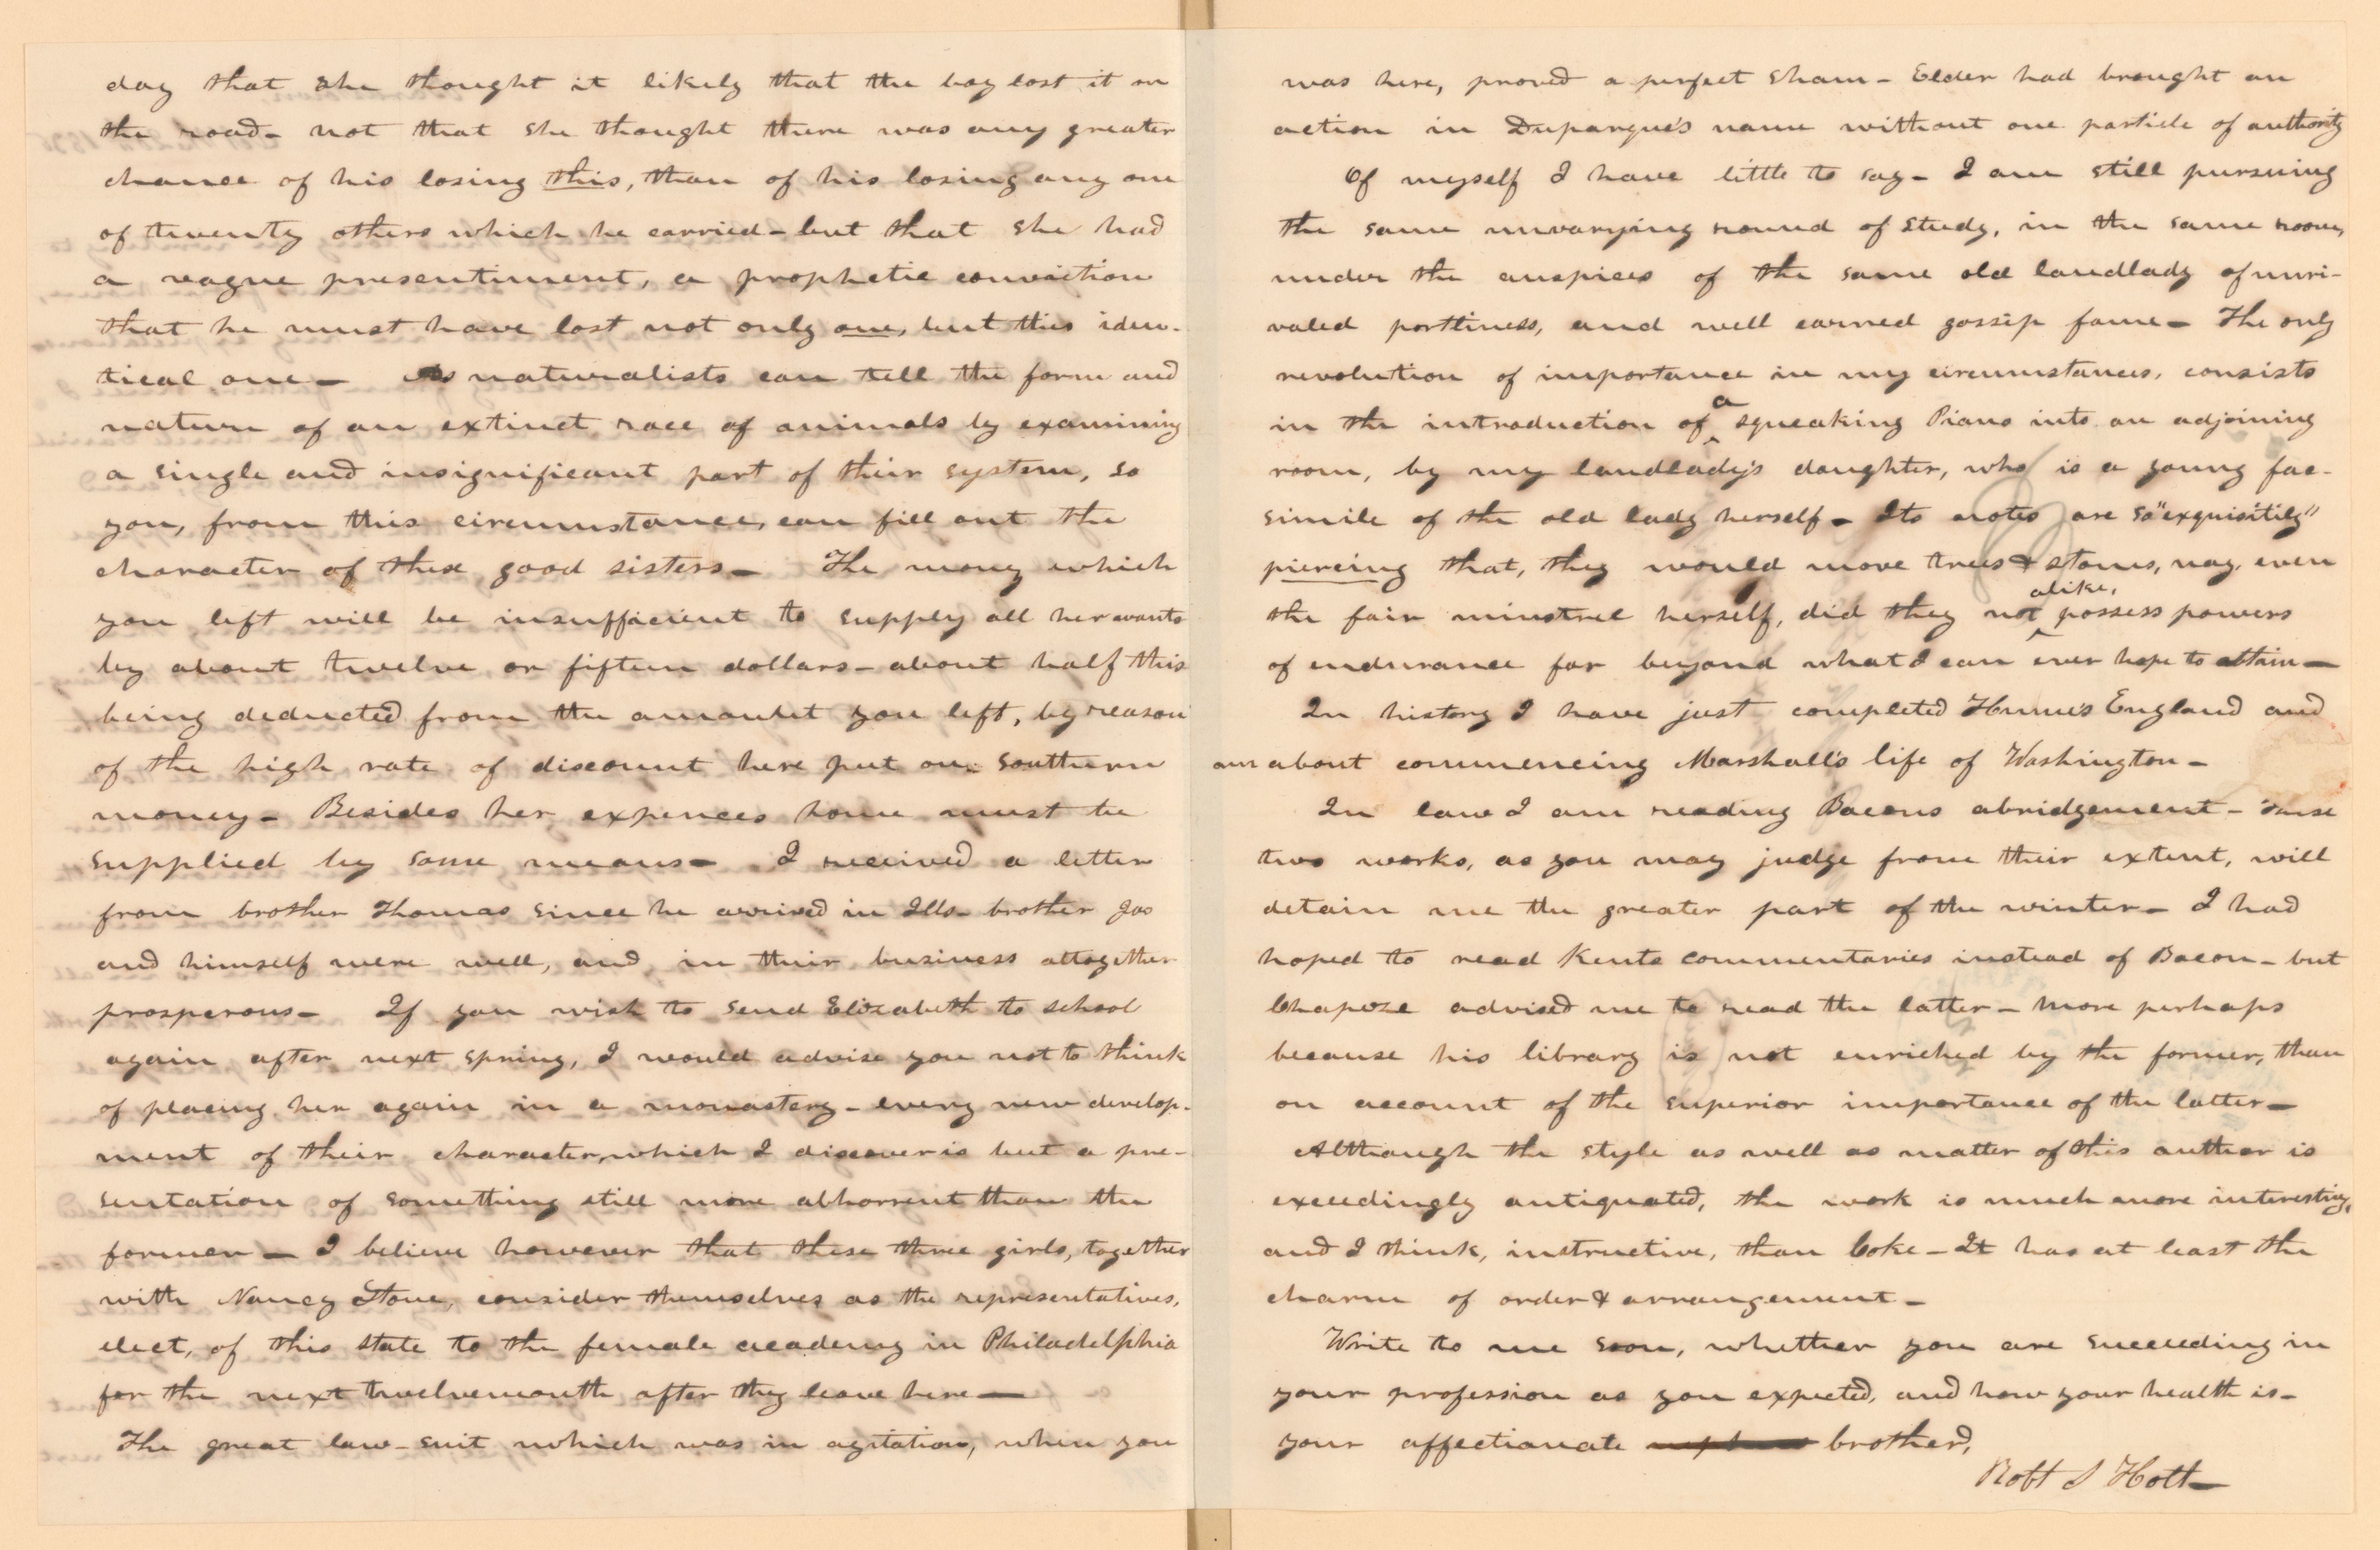 day that she thought it likely that the boy lost it on
the road - not that she thought there was any greater
chance of his losing this, than of his losing any one
of twenty others which he carried - but that she had
a vague presentiment, a prophetic conviction
that he must have lost not only one, but this iden-
tical one - As naturalists can tell the form and
nature of an extinct race of animals by examining
a single and insignificant part of their system, so
you, from this circumstance, can fill out the
character of these good sisters - The money which
you left will be insufficient to supply all her wants
by about twelve or fifteen dollars - about half this
being deducted from the amount you left, by reason
of the high rate of discount here put on Southern
money - Besides her expences home must be
supplied by some means - I received a letter
from brother Thomas since he arrived in Ills - brother Jas
and himself were well, and in their business altogether
prosperous - If you wish to send Elizabeth to school
again after next spring, I would advise you not to think
of placing her again in a monastery - every new develop-
ment of their character, which I discover is but a pre-
sentation of something still more abhorrent than the
former - I believe however that these three girls, together
with Nancy Stone, consider themselves as the representatives,
elect, of this state to the female academy in Philadelphia
for the next twelvemonth after they leave here -
The great law-suit which was in agitation, when you
was here, proved a perfect sham - Elder had brought an
action in Duparque's name without one particle of authority
Of myself I have little to say - I am still pursuing
the same unvarying round of study, in the same room,
under the auspices of the same old landlady of unri-
valed portliness, and well earned gossip fame - The only
revolution of importance in my circumstances, consists
in the introduction of a squeaking Piano into an adjoining
room, by my landlady's daughter, who is a young fac-
simile of the old lady herself - Its notes are so "exquisitily"
piercing that, they would move trees & stones, nay, even
the fair minstrel herself, did they not alike, possess powers
of endurance far beyond what I can ever hope to attain -
In history I have just completed Hume's England and
am about commencing Marshall's life of Washington -
In law I am reading Bacons abridgement - These
two works, as you may judge from their extent, will
detain me the greater part of the winter - I had
hoped to read Kents commentaries instead of Bacon - but
Chapeze advised me to read the latter - more perhaps
because his library is not enriched by the former, than
on account of the superior importance of the latter -
Although the style as well as matter of this author is
exceedingly antiquated, the work is much more interesting,
and I think, instructive, than Coke - It has at least the
charm of order & arrangement -
Write to me soon, whether you are succeeding in
your profession as you expected, and how your health is -
your affectionate brother,
Robt S Holt -